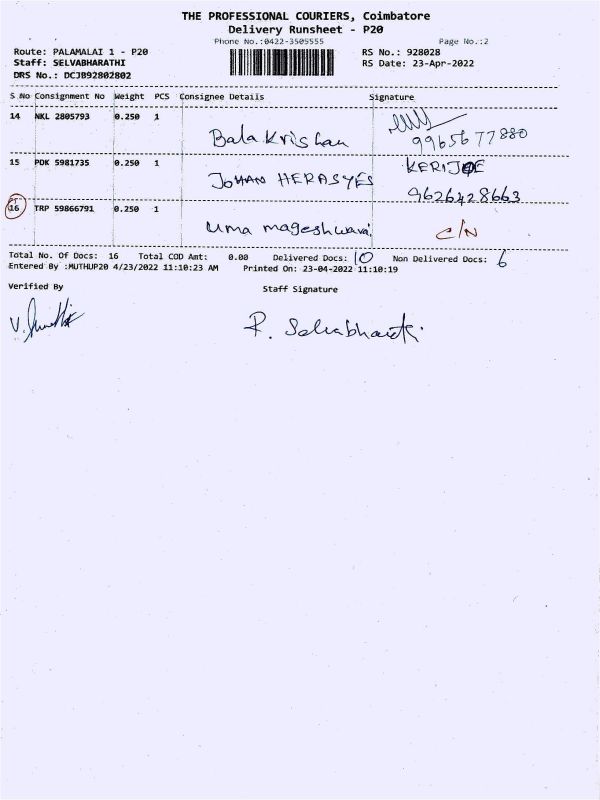 THE PROFESSIONAL COURIERS, Coimbatore
Delivery Runsheet - P20
Phone No.:0422-3505555 Page No.:2
Route: PALAMALAI 1 - P20 RS No.: 928028
Staff: SELVABHARATHI RS Date: 23-Apr-2022
DRS No.: DCJB92802802
S No Consignment No Weight PCS Consignee Details Signature
14 NKL 2805793 0.250 1
Bala Krishan 9965677880
15 PDK 5981735 0.250 1 KERIJOE
JOHAN HERASYES 9626428663
16 TRP 59866791 0.250 1
uma mageshwari C/N
Total No. Of Docs: 16 Total COD Amt: 0.00 Delivered Docs: 10 Non Delivered Docs: 6
Entered By :MUTHUP20 4/23/2022 11:10:23 AM Printed On: 23-04-2022 11:10:19
Verified By Staff Signature
R. Selvabharathi